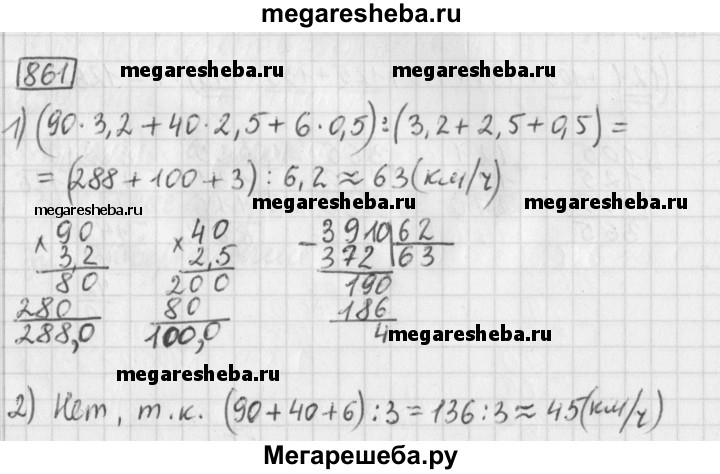 megaresheba.ru
861
megaresheba.ru megaresheba.ru
1) (90·3,2+40·2,5+6·0,5):(3,2+2,5+0,5)=
=(288+100+3):6,2≈63(км/ч)
megaresheba.ru megaresheba.ru megaresheba.ru
×90 ×40 −3910|62
3,2 2,5 372 |63
80 200 190
280 80 186
288,0 100,0 4
megaresheba.ru
megaresheba.ru
2) Нет, т.к. (90+40+6):3=136:3≈45(км/ч)
Мегарешеба.ру